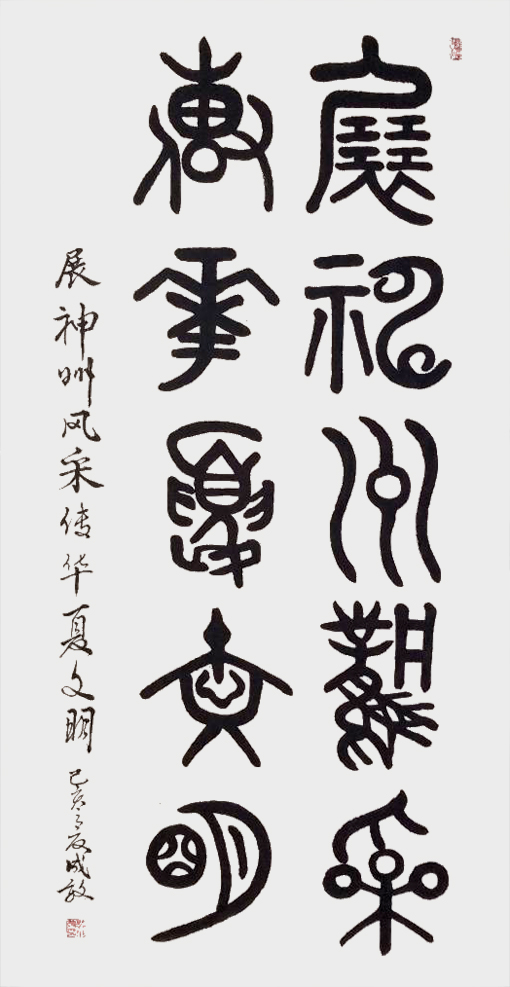 展神州風采
傳華夏文明
展神州风采传华夏文明
己亥之夏成